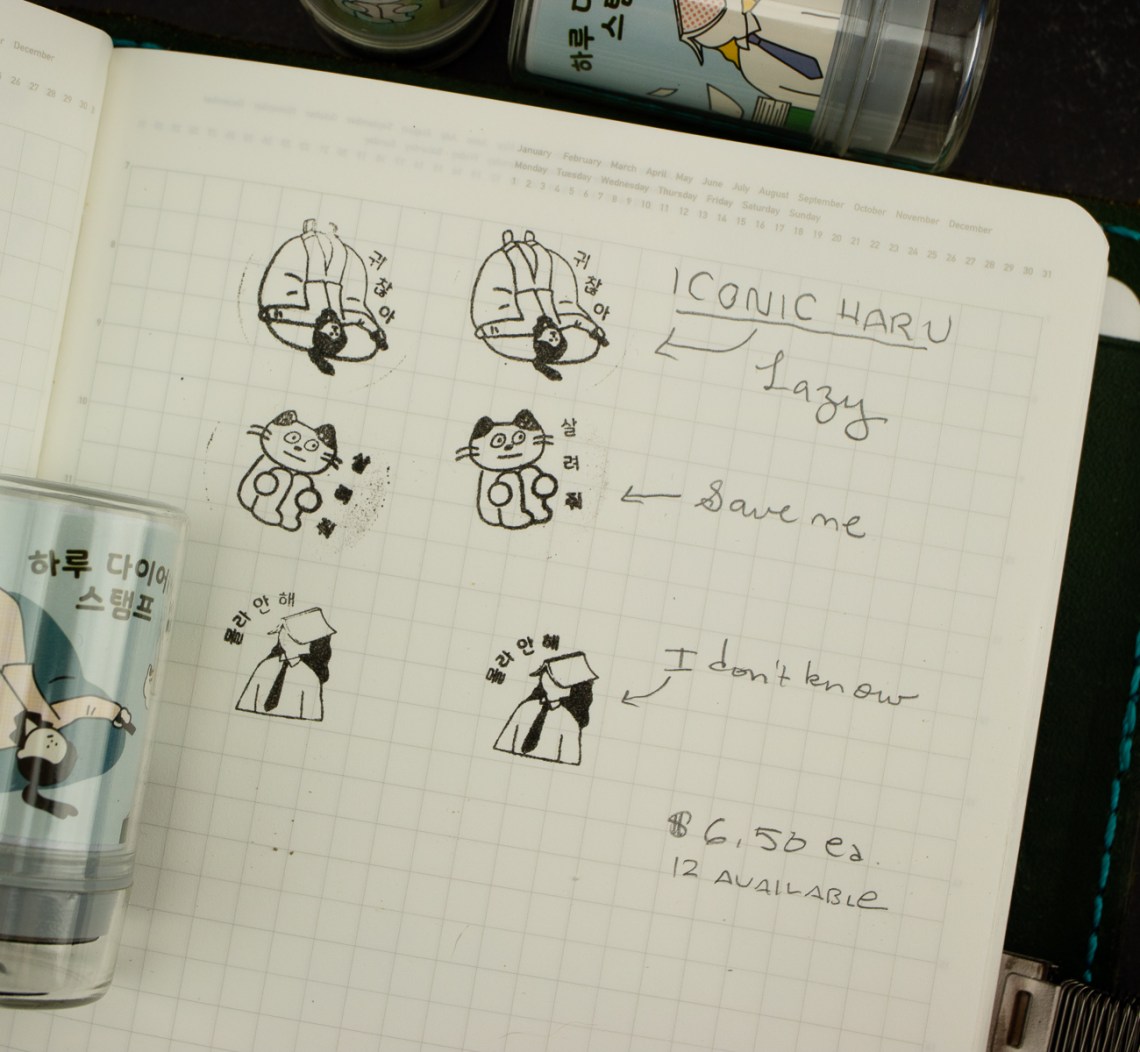 December
26 27 28 29 30
하루
스탬
January February March April May June July August September October November December
Monday Tuesday Wednesday Thursday Friday Saturday Sunday
1 2 3 4 5 6 7 8 9 10 11 12 13 14 15 16 17 18 19 20 21 22 23 24 25 26 27 28 29 30 31
7
8
9
10
11
귀찮아
귀찮아
ICONIC HARU
Lazy
살려줘
Save me
몰라 안 해
몰라 안 해
I don't know
하루 다이어
스탬프
$6.50 ea.
12 AVAILABLE